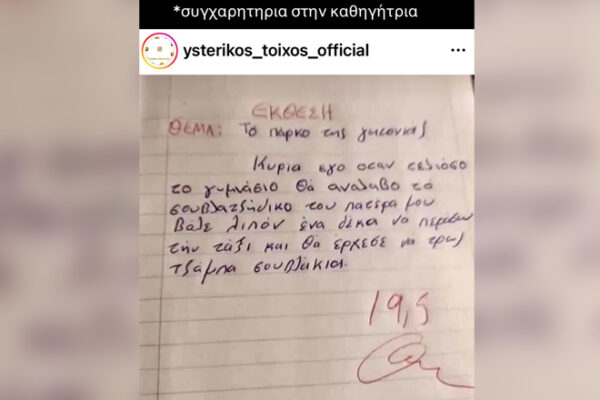 *συγχαρητηρια στην καθηγήτρια
ysterikos_toixos_official
ΕΚΘΕΣΗ
ΘΕΜΑ: Το πάρκο της γιτονιάς
Κυρια εγο όταν τελιόσο
το γυμνάσιο θα αναλαβο το
σουβλατζήδικο του πατέρα μου
βάλε λιπόν ένα δέκα να περάσω
την τάξι και θα έρχεσε να τρως
τζάμπα σουβλάκια.
19,5